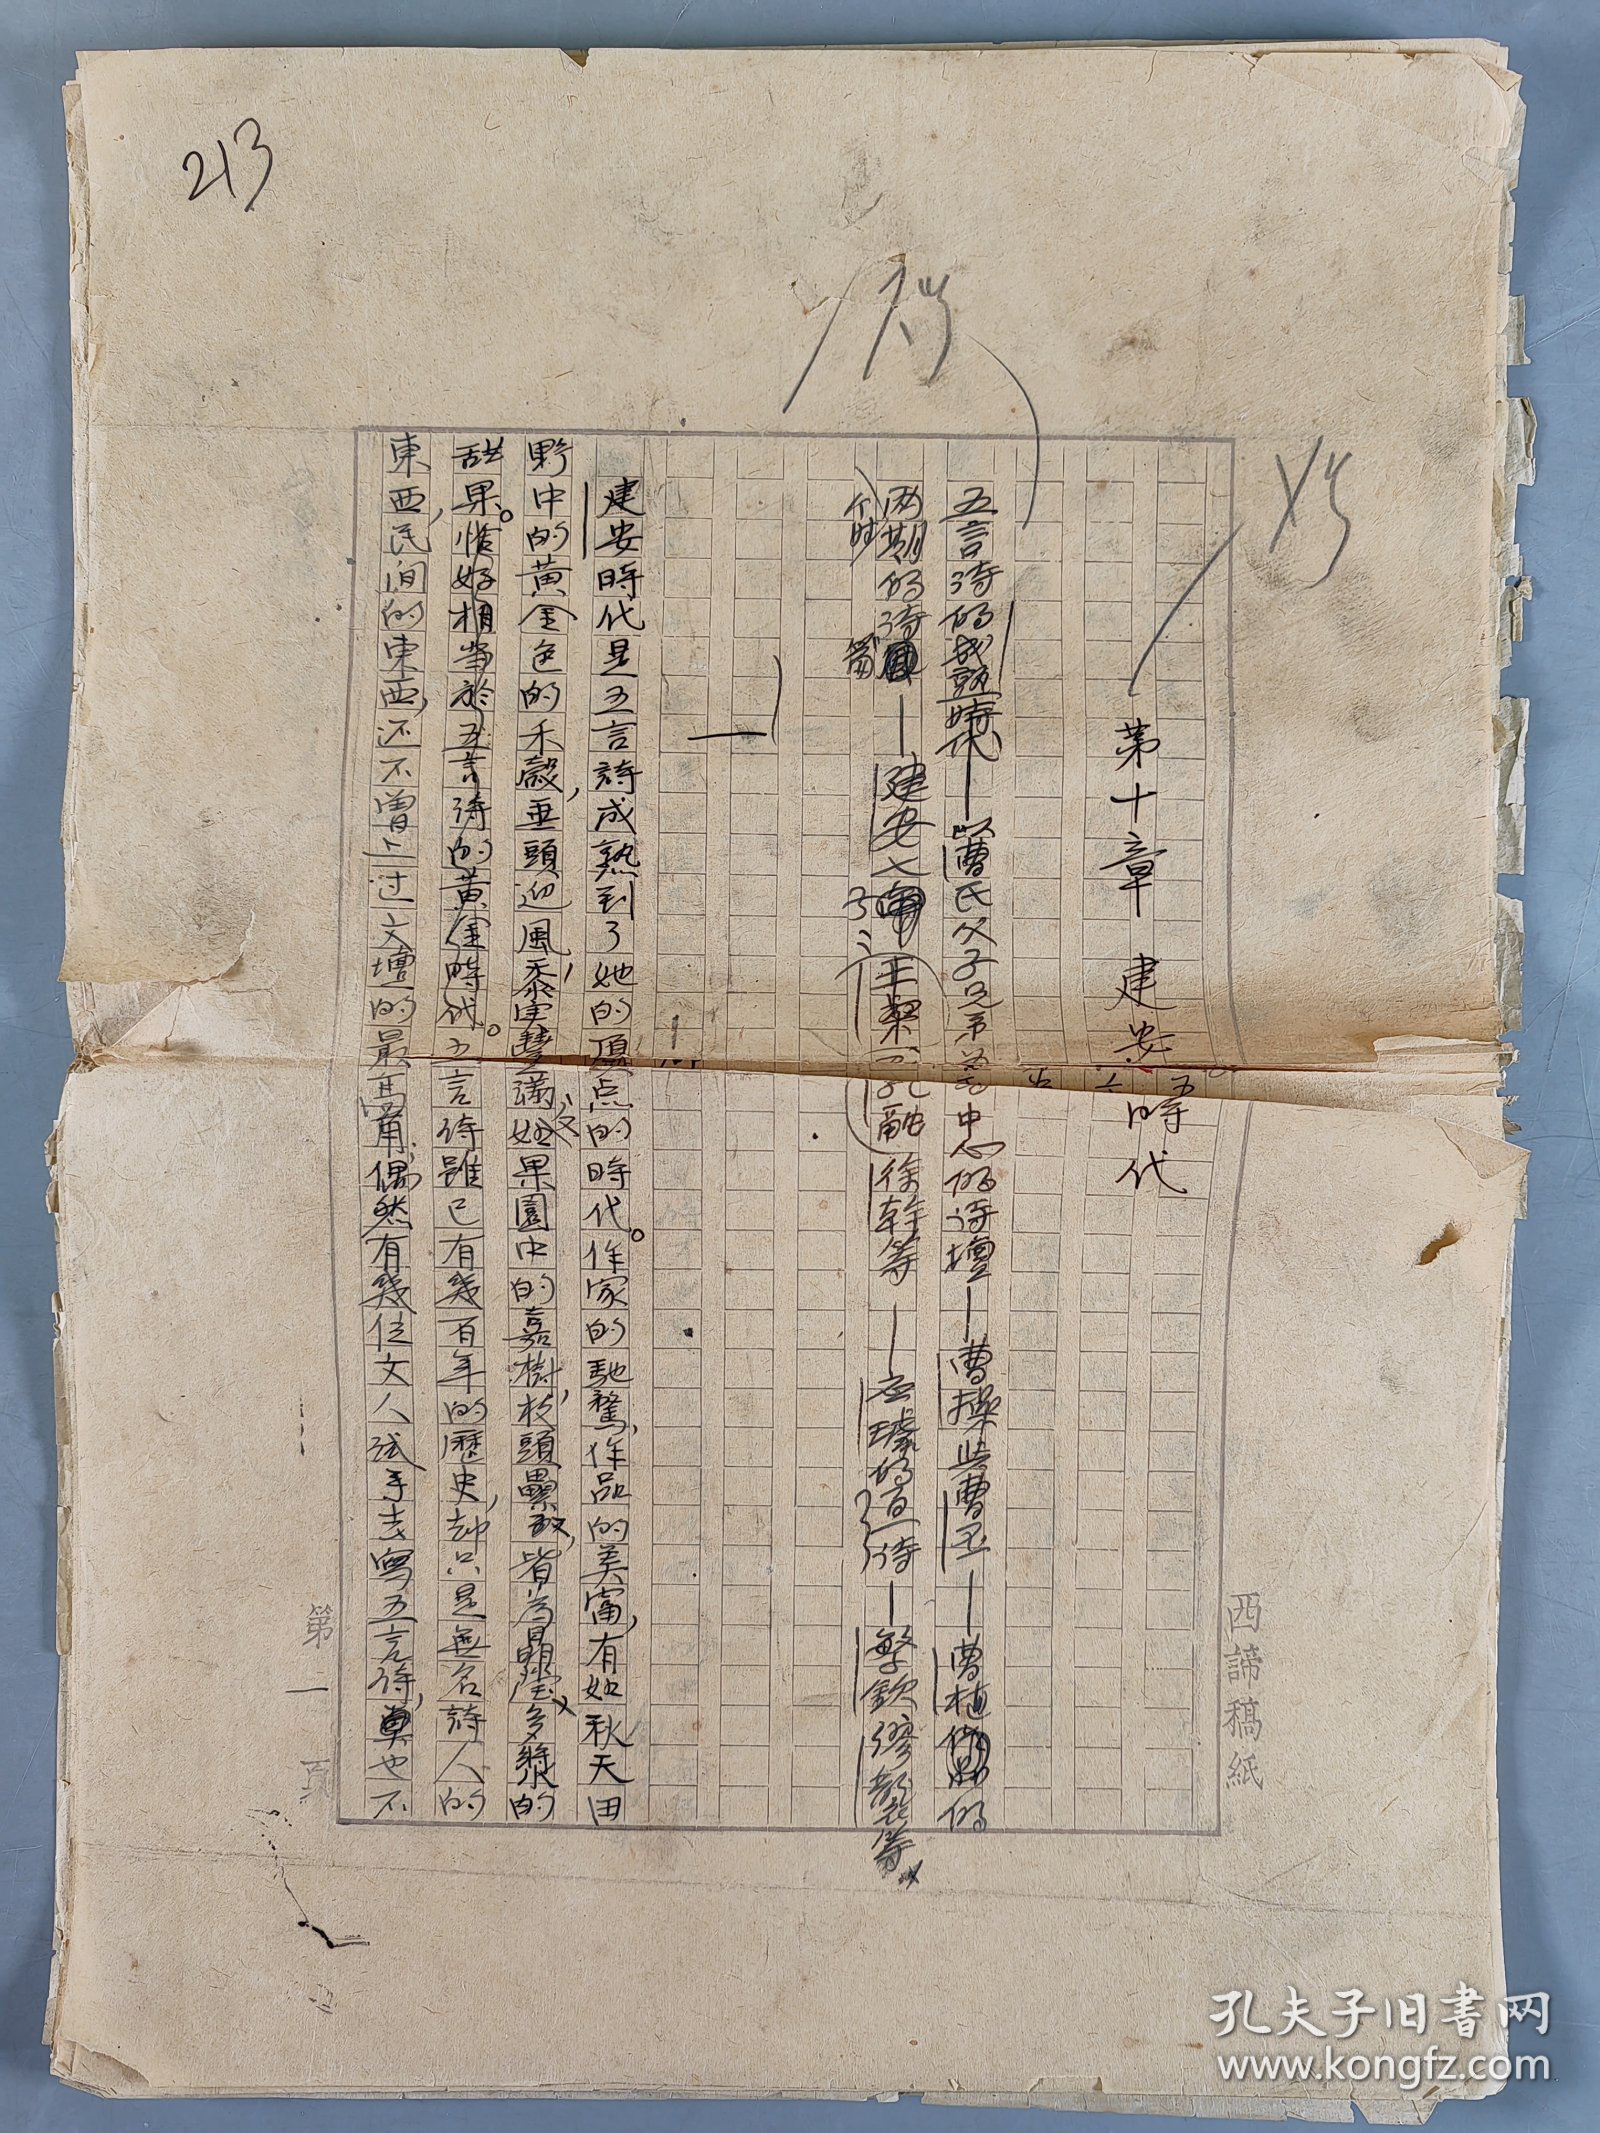 213
第十章 建安時代
五言诗的成熟時代—以曹氏父子兄弟为中心的诗壇—曹操與曹丕—曹植的
兩個時期的诗篇—建安七子：王粲 孔融 徐幹等—应璩的百一诗—繁欽繆襲等
一
建安時代是五言詩成熟到了她的頂点的時代。作家的馳騖，作品的美富，有如秋天田
野中的黄金色的禾穀，垂頭迎風，黍實豐滿；又如果園中的嘉樹，枝頭纍纍，皆為晶瑩多漿的
甜果。恰好相當於五言诗的黄金時代。五言诗雖已有幾百年的歷史，却只是無名詩人的
東西，民间的東西，还不曾上过文壇的最高角，偶然有幾位文人試手去寫五言诗，也不
西諦稿紙
第一頁
孔夫子旧書网
www.kongfz.com